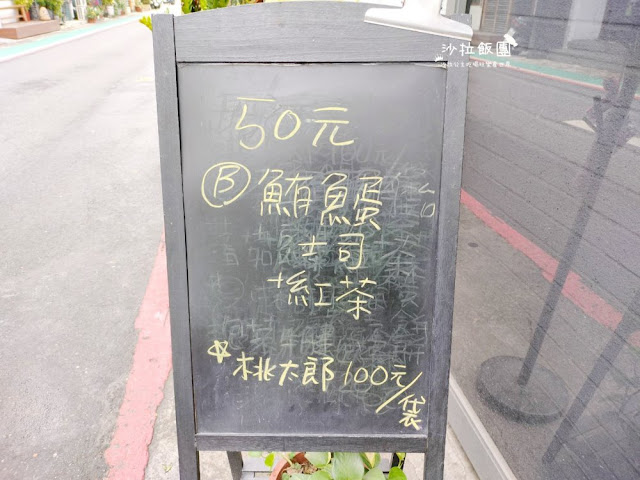 沙拉飯團
50元
Ⓑ 鮪魚蛋
土司
+紅茶
☆桃太郎100元/袋